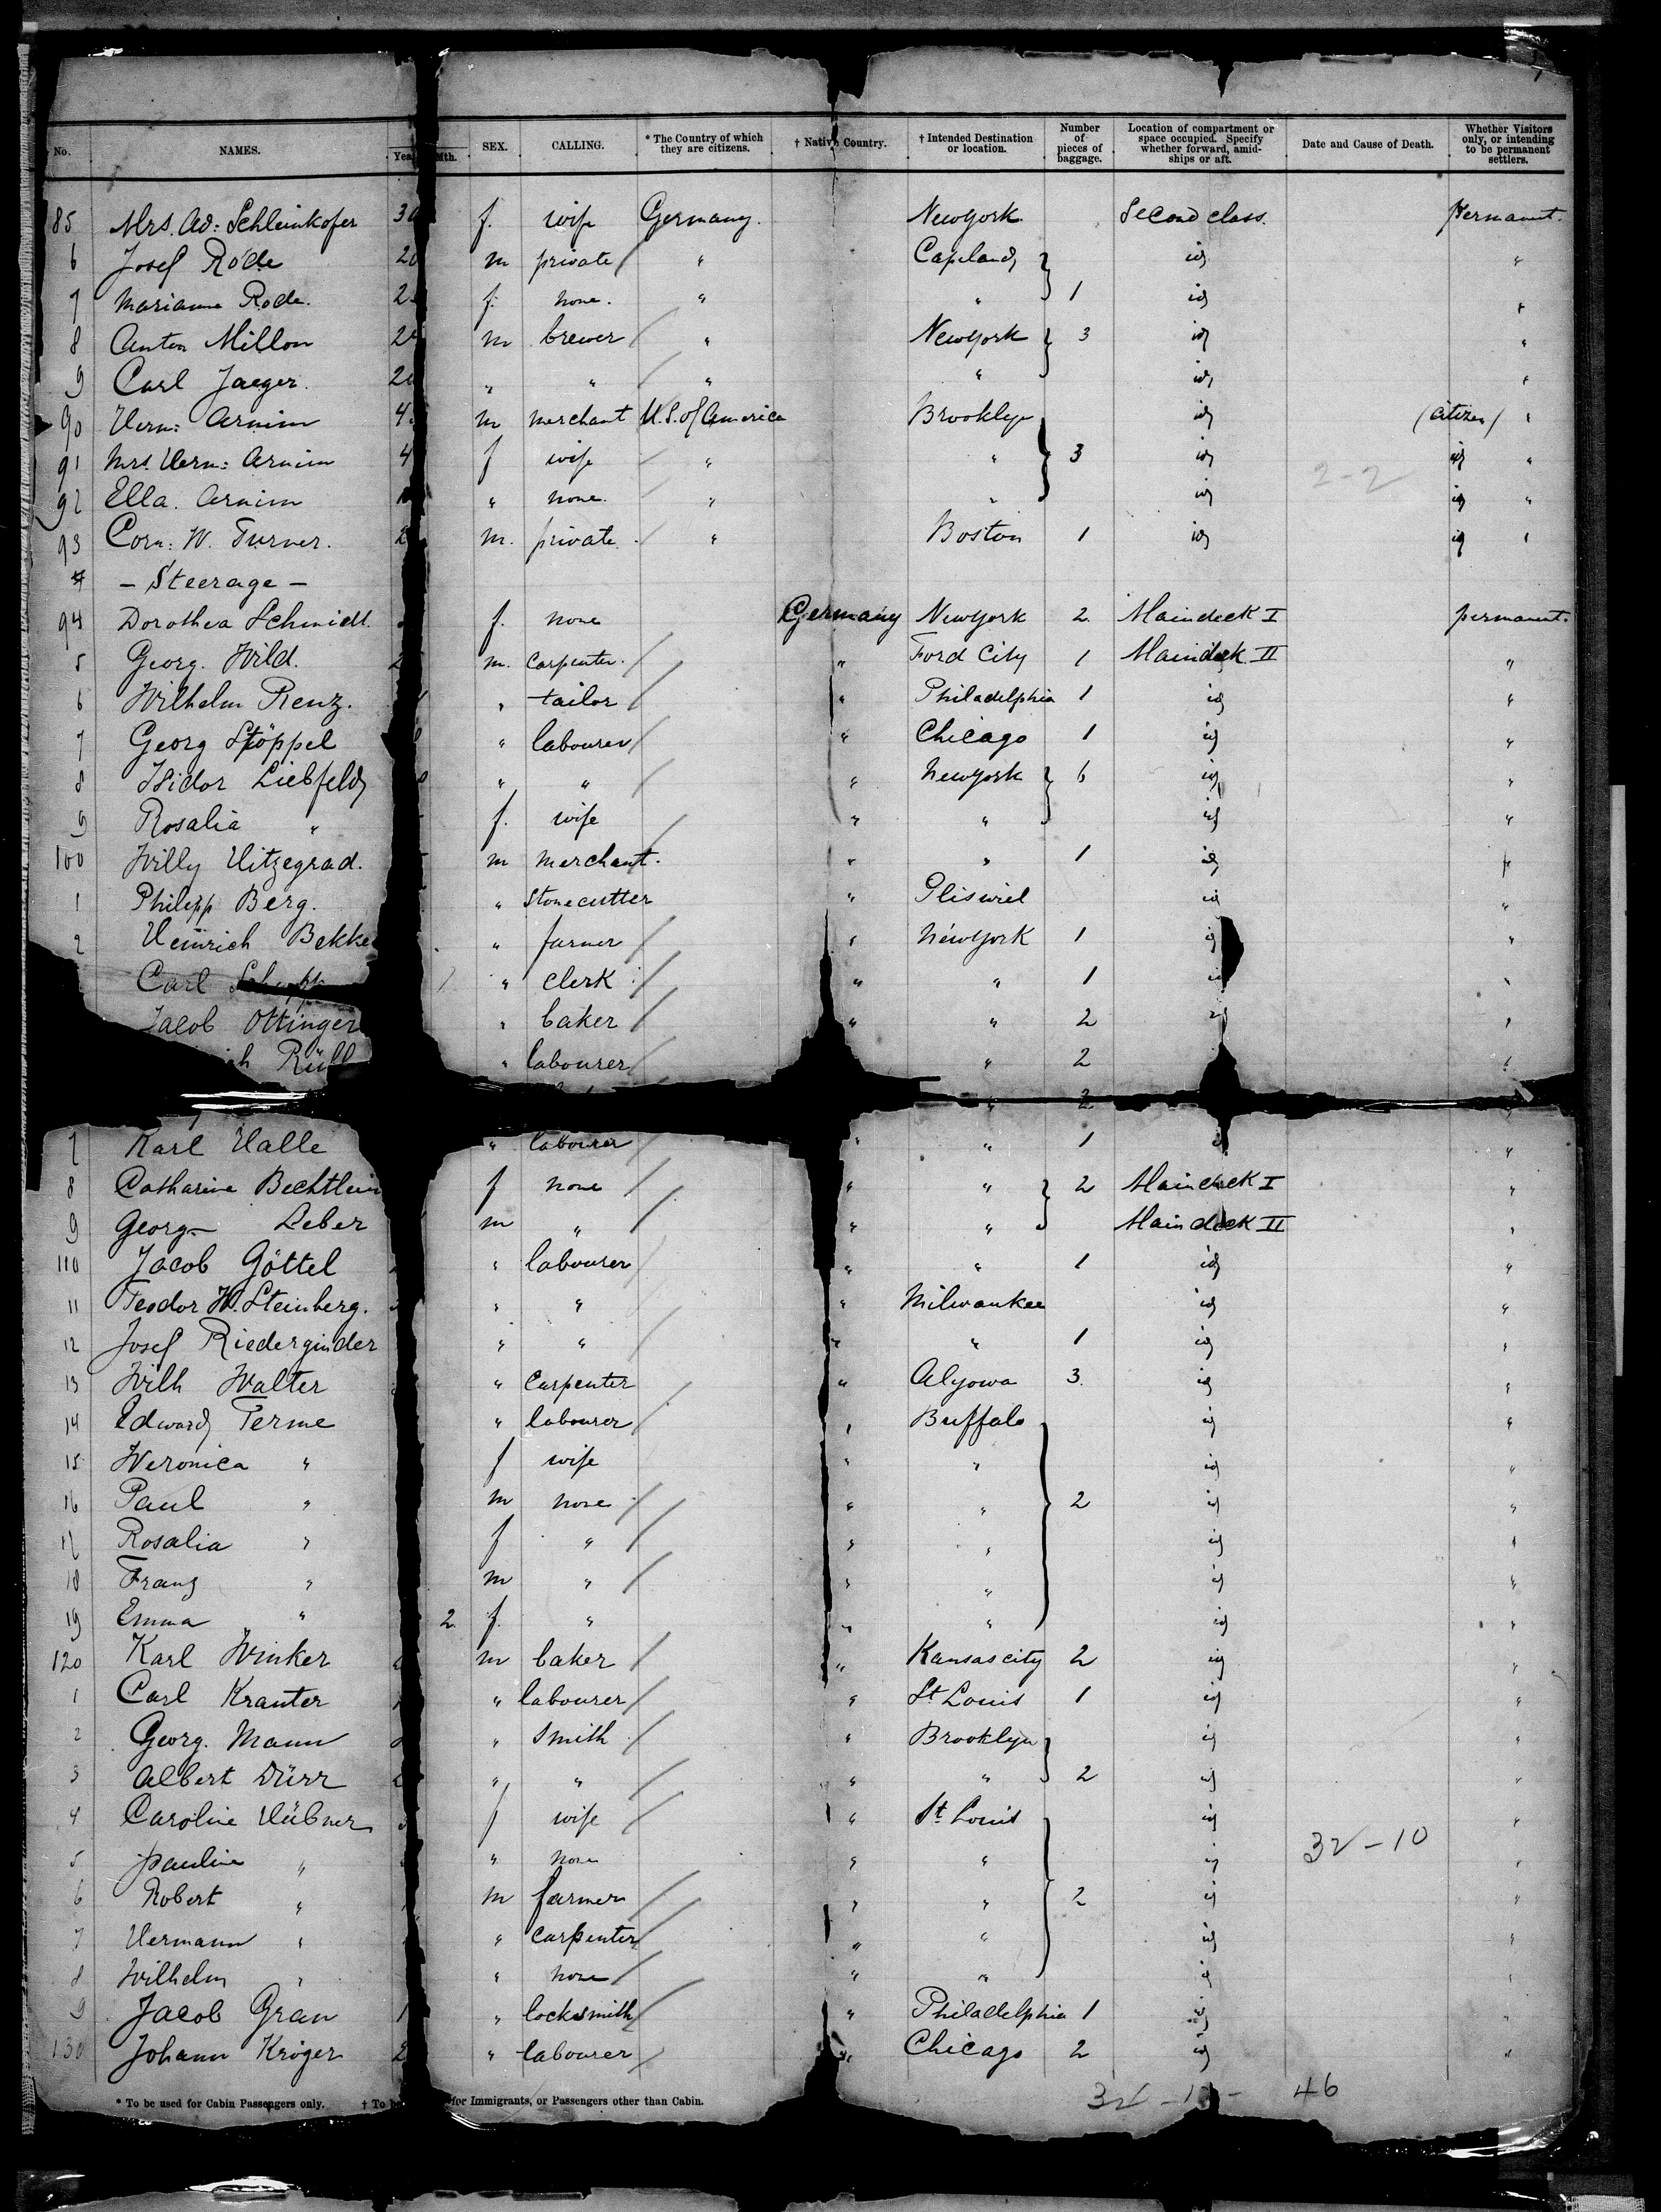 No. NAMES. Years Mth. SEX. CALLING. * The Country of which they are citizens. † Native Country. † Intended Destination or location. Number of pieces of baggage. Location of compartment or space occupied. Specify whether forward, amidships or aft. Date and Cause of Death. Whether Visitors only, or intending to be permanent settlers.
85 Mrs. Ad: Schleinkofer 30 f. wife Germany. NewYork Second class. permanent.
6 Josef Rode m private " Capeland id "
7 Marianne Rode. f. none. " " 1 id "
8 Anton Millon m brewer " NewYork 3 id "
9 Carl Jaeger. " " " " id "
90 Herm: Arnim m merchant U.S. of America Brooklyn id (citizen) "
91 Mrs. Herm: Arnim f wife " " 3 id id "
92 Ella. Arnim " none. " " id id "
93 Corn: W. Turner. m. private " Boston 1 id id "
2-2
- Steerage -
94 Dorothea Schmidt f. none Germany NewYork 2. Maindeck I permanent.
5 Georg. Wild. m. carpenter. " Ford City 1 Maindeck II "
6 Wilhelm Renz. " tailor " Philadelphia 1 id "
7 Georg Stöppel " labourer " Chicago 1 id "
8 Isidor Liebfeld " " " NewYork 6 id "
9 Rosalia " f. wife " " id "
100 Willy Hitzegrad. m merchant. " " 1 id "
1 Philipp Berg. " Stonecutter " id "
2 Heinrich Bekke " farmer " NewYork 1 id "
Carl " clerk " " 1 id "
Jacob Ottinger " baker " " 2 "
Rühl " labourer " 2 "
" 2
7 Karl Halle " labourer " " 1 "
8 Catharine Bechtlein f none " " 2 Maindeck I "
9 Georg Leber m " " " Maindeck II "
110 Jacob Göttel " labourer " " 1 id "
11 Teodor W. Steinberg. " " " Milwaukee id "
12 Josef Riederginder " " " " 1 id "
13 Wilh Walter " carpenter " Alyowa 3. id "
14 Edward Terme " labourer " Buffalo id "
15 Weronica " f wife " " id "
16 Paul " m none " " 2 id "
17 Rosalia " f " " " id "
18 Franz " m " " " id "
19 Emma " 2 f. " " " id "
120 Karl Winker m baker " Kansas city 2 id "
1 Carl Kranter " labourer " St Louis 1 id "
2 Georg. Mann " Smith " Brooklyn id "
3 Albert Dürr " " " " 2 id "
4 Caroline Hübner f wife " St. Louis id "
5 Pauline " " none " " id "
32-10
6 Robert " m farmer " " 2 id "
7 Hermann " " carpenter " " id "
8 Wilhelm " " none " " id "
9 Jacob Gran 1 " locksmith " Philadelphia 1 id "
130 Johann Kröger 2 " labourer " Chicago 2 id "
46
* To be used for Cabin Passengers only. † To be for Immigrants, or Passengers other than Cabin.